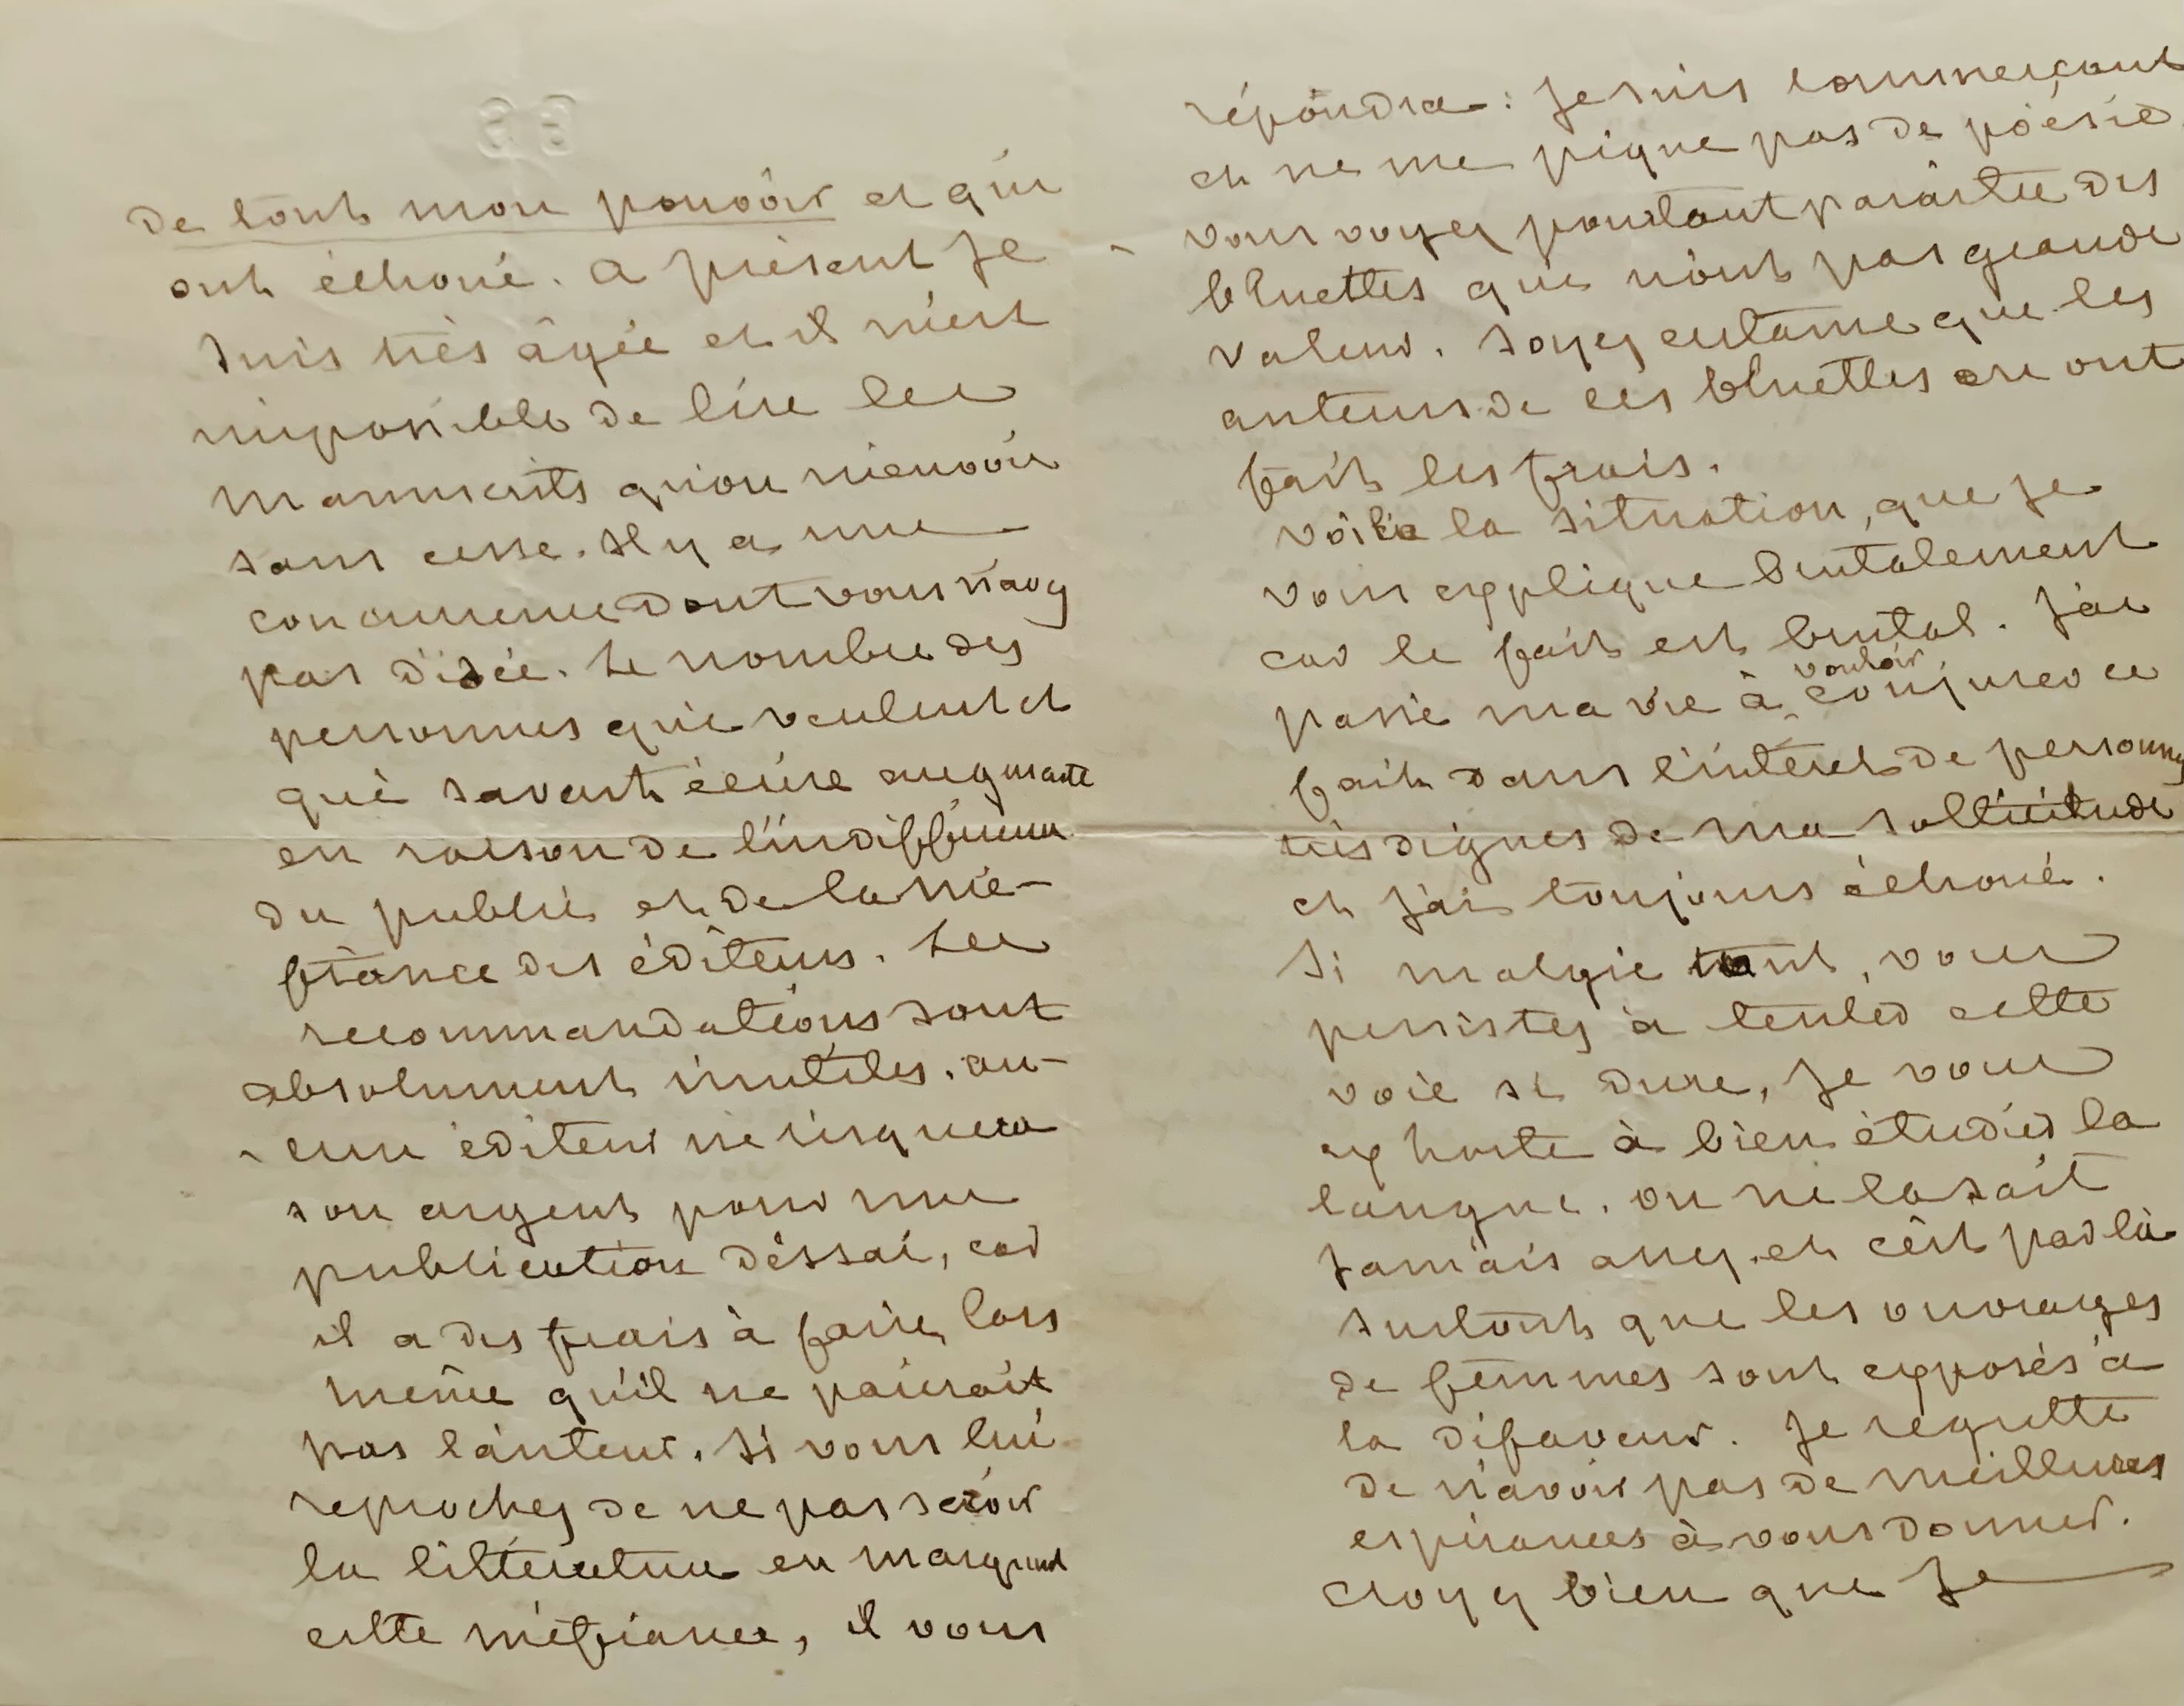 de tout mon pouvoir et qui
ont échoué. a présent je
suis très âgée et il m'est
impossible de lire les
manuscrits qu'on m'envoie
sans cesse. Il y a une
concurrence dont vous n'avez
pas d'idée. Le nombre des
personnes qui veulent et
qui savent écrire augmente
en raison de l'indifférence
du public et de la mé-
fiance des éditeurs. Les
recommandations sont
absolument inutiles. au-
cun éditeur ne risquera
son argent pour une
publication d'essai, car
il a des frais à faire, lors
même qu'il ne paierait
pas l'auteur. Si vous lui
reprochez de ne pas servir
la littérature en marquant
cette méfiance, il vous
répondra : Je suis commerçant
et ne me pique pas de poésie.
vous voyez pourtant paraître des
bluettes qui n'ont pas grande
valeur. soyez certaine que les
auteurs de ces bluettes en ont
fait les frais.
voila la situation, que je
vous explique brutalement
car le fait est brutal. J'ai
passé ma vie à vouloir conjurer ce
fait dans l'intérêt de personnes
très dignes de ma sollicitude
et j'ai toujours échoué.
Si malgré tout, vous
persistez à tenter cette
voie si dure, je vous
exhorte à bien étudier la
langue. on ne la sait
jamais assez. et c'est par là
surtout que les ouvrages
de femmes sont exposés à
la défaveur. Je regrette
de n'avoir pas de meilleures
espérances à vous donner.
croyez bien que je